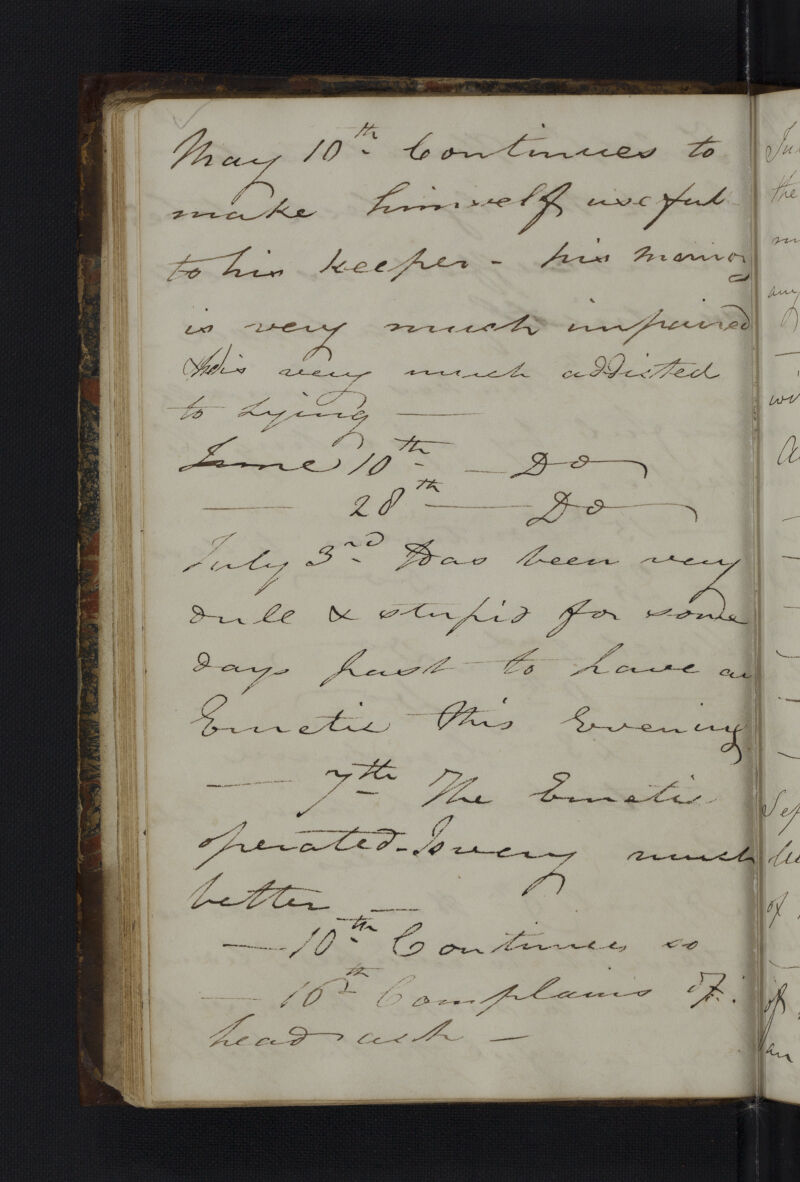 May 10th. Continues to
make himself useful
to his keeper - his memory
is very much impaired
& his very much addisted
to Lying —
June 10th. — Do
— 28th — Do
July 3rd. Has been very
dull & stupid for some
days past to have an
Emetic this Evening
— 7th The Emetic
operated - Is very much
better —
— 10th. Continues so
— 16th Complains of.
head ach —